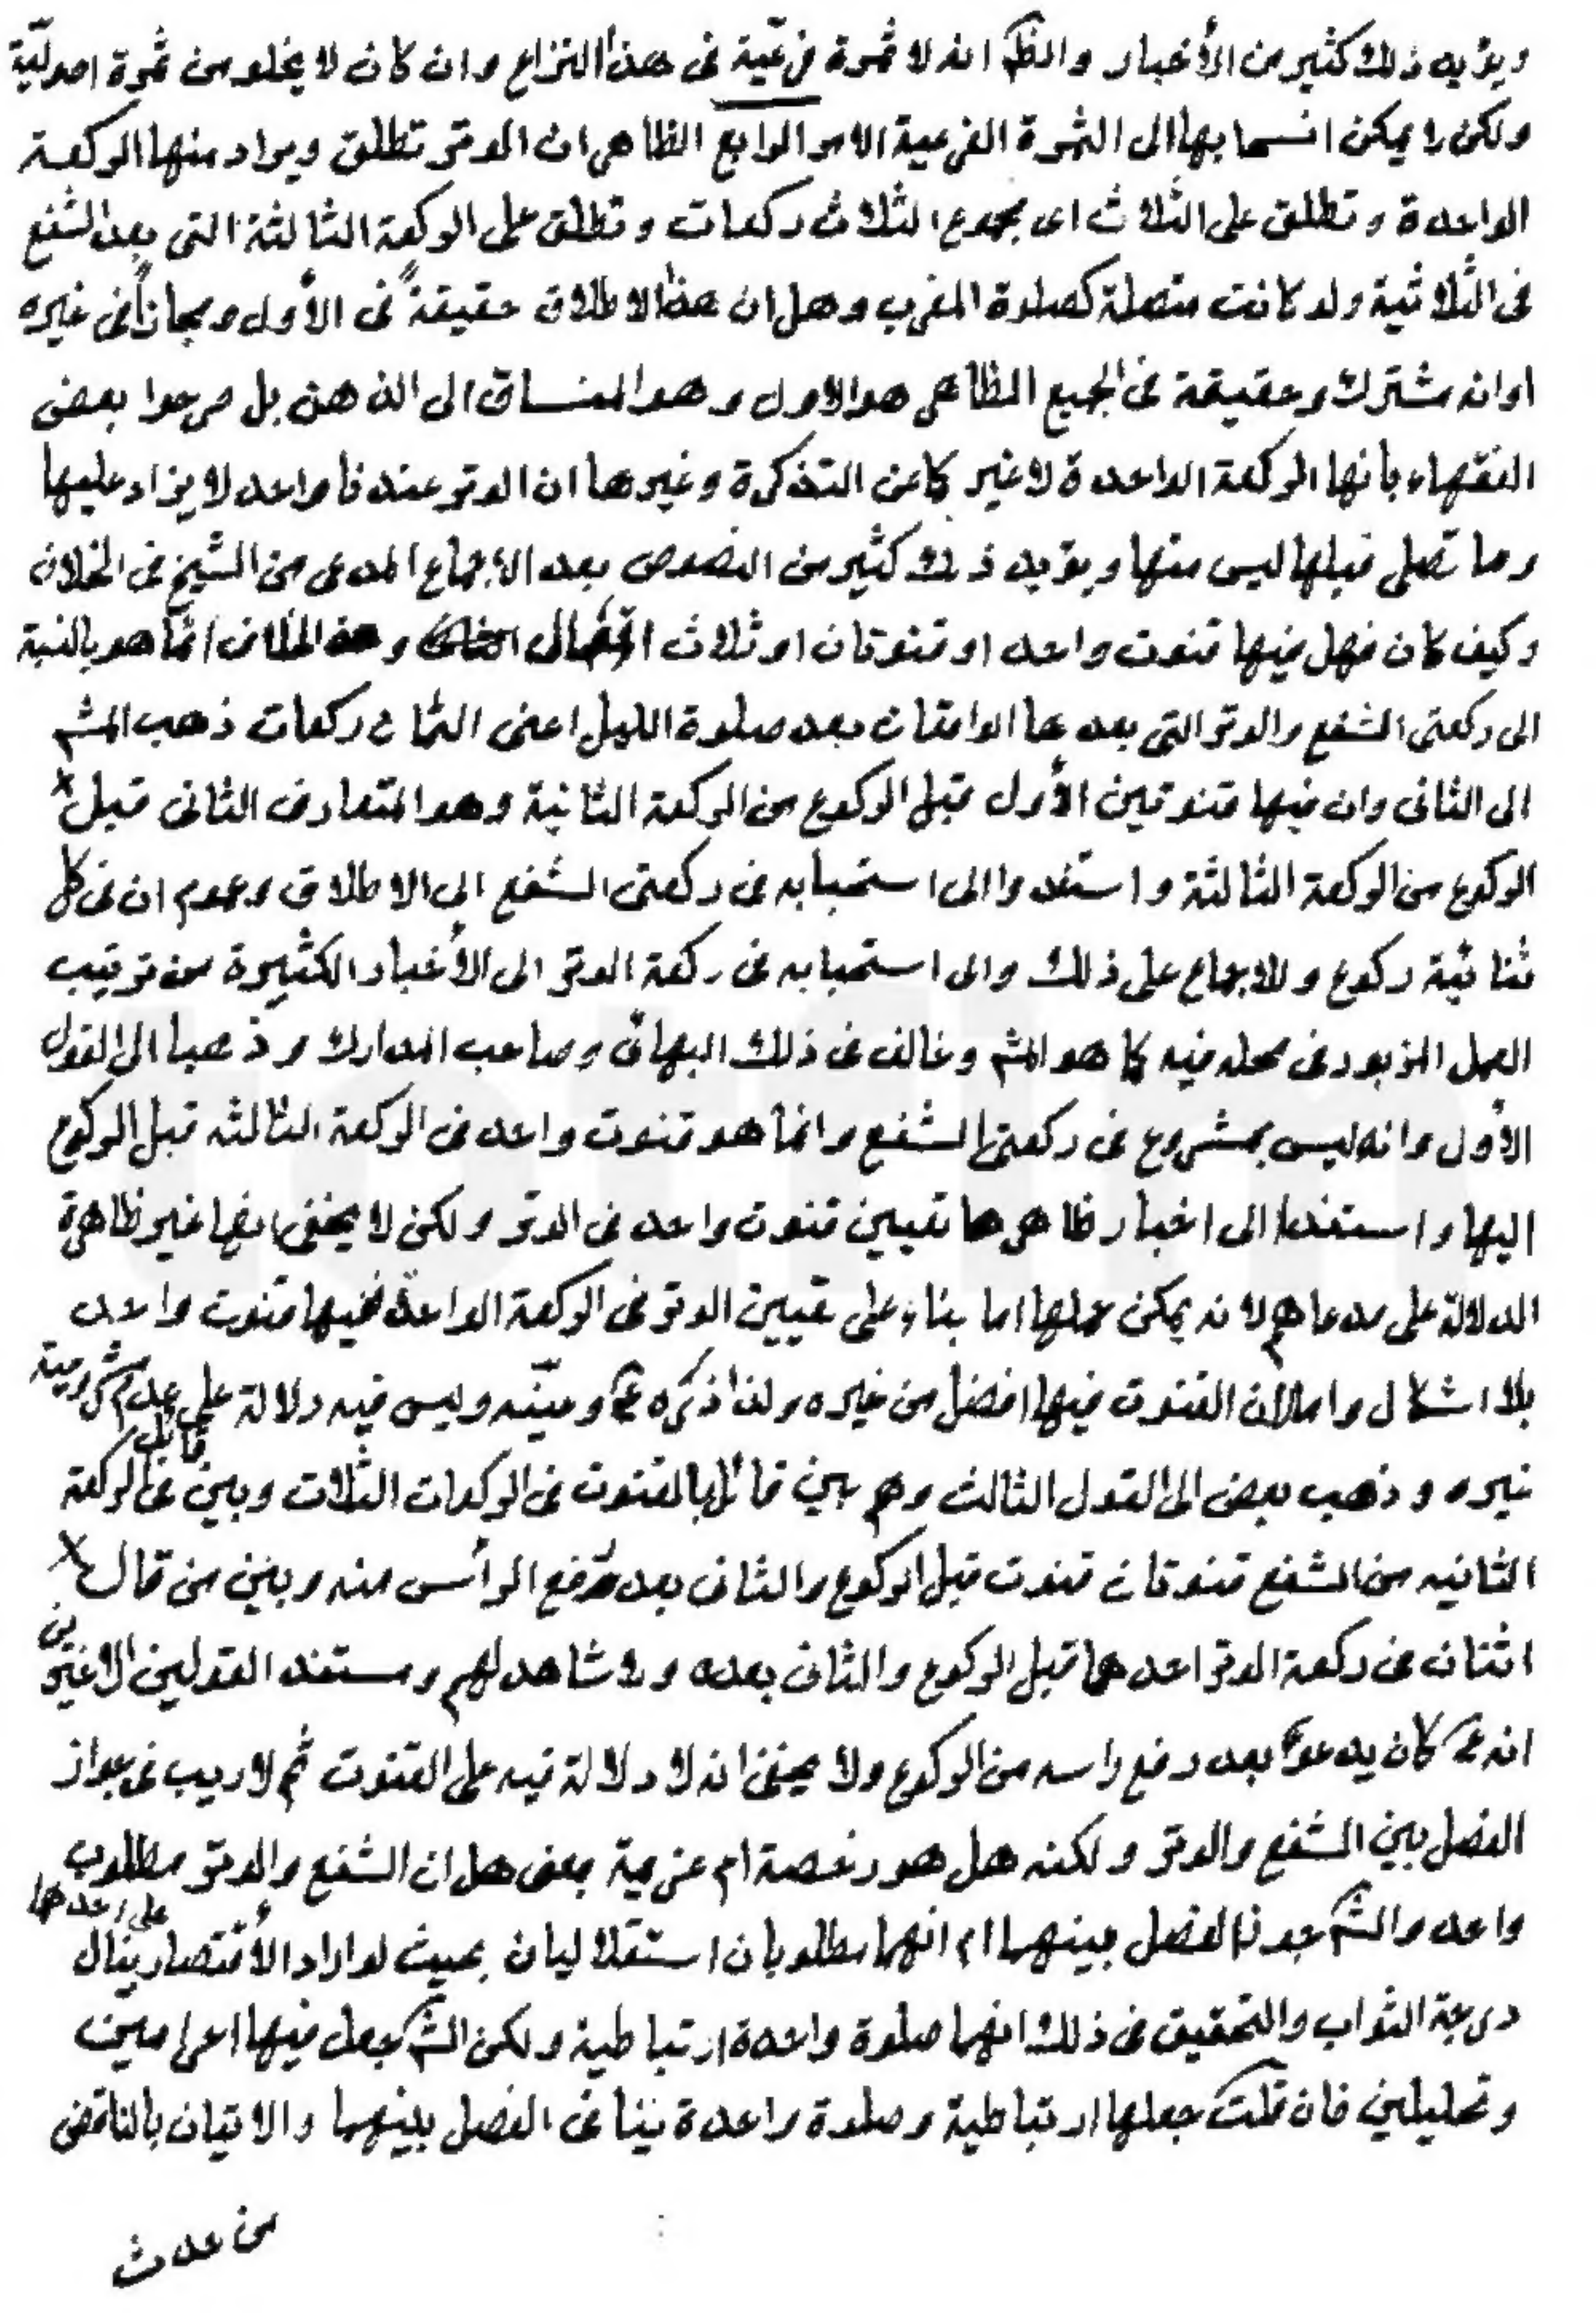 ويؤيد ذلك كثير من الأخبار والظ انه لا ثمرة فرعيّة في هذا النزاع وان كان لا يخلو من ثمرة اصوليّة
ولكن لا يمكن انسحابها الى الثمرة الفرعية الامر الرابع الظاهر ان الوتر تطلق ويراد منها الركعة
الواحدة وتطلق على الثلاث اى مجموع الثلاث ركعات وتطلق على الركعة الثالثة التى بعد الشفع
فى الثلاثية ولو كانت متصلة كصلوة المغرب وهل ان هذا الاطلاق حقيقةً فى الأول ومجازاً فى غيره
اوانه مشترك وحقيقة فى الجميع الظاهر هو الاول وهو المنساق الى الذهن بل صرحوا بعض
الفقهاء بأنها الركعة الواحدة لا غير كما عن التذكرة وغيرها ان الوتر عندنا واحد لا يزاد عليها
وما تصلى قبلها ليس منها ويؤيد ذلك كثير من النصوص بعد الأجماع المدعى من الشيخ فى الخلاف
وكيف كان فهل فيها قنوت واحد او قنوتان او ثلاث وهذ الخلاف انمّا هو بالنسبة
الى ركعتى الشفع والوتر التى بعدها الواقعان بعد صلوة الليل اعنى الثمان ركعات ذهب المشه
الى الثانى وان فيها قنوتين الأول قبل الركوع من الركعة الثانية وهو المتعارف الثانى قبل
الركوع من الركعة الثالثة واستندوا الى استحبابه فى ركعتى الشفع الى الاطلاق وعموم ان فى كل
ثنائية ركوع وللاجماع على ذلك والى استحبابه فى ركعة الوتر الى الأخبار الكثيرة من ترتيب
العمل المزبور فى محله فيه كما هو المشه وخالف فى ذلك البهائى وصاحب المدارك وذهبا الى القول
الأول وانه ليس بمشروع فى ركعتى الشفع وانما هو قنوت واحد فى الركعة الثالثه قبل الركوع
اليها واستندا الى اخبار ظاهرها تعيين قنوت واحد فى الوتر ولكن لا يخفى انها غير ظاهرة
الدلالة على مدعاهم لانه يمكن حملها اما بناء على تعيين الوتر فى الركعة الواحدة ففيها قنوت واحد
بلا اشكال واما لان القنوت فيها افضل من غيره ولذا ذكره ع وعيّنه وليس فيه دلالة على عدم مشروعية
غيره وذهب بعض الى القول الثالث وهم بين قائل بالقنوت فى الركعات الثلاث وبين قائل فى الركعة
الثانيه من الشفع قنوتان قنوت قبل الركوع والثانى بعد رفع الرأس منه وبين من قال
اثنتان فى ركعة الوتر احدهما قبل الركوع والثانى بعده ولا شاهد لهم ومستند القولين الاخيرين
انه ع كان يدعو بعد رفع راسه من الركوع ولا يخفى انه لا دلالة فيه على القنوت ثم لا ريب فى جواز
الفصل بين الشفع والوتر ولكنه هل هو رخصة ام عزيمة بمعنى هل ان الشفع والوتر مطلوب
واحد والش جوز الفصل بينهما ام انهما مطلوبان استقلاليان بحيث لو اراد الأقتصار على احدهما ينال
درجة الثواب والتحقيق فى ذلك انهما صلوة واحدة ارتباطية ولكن الش جعل فيها احرامين
وتحليلين فان قلت جعلها ارتباطية وصلوة واحدة ينافى الفصل بينهما والاتيان بالناقض
من حدث